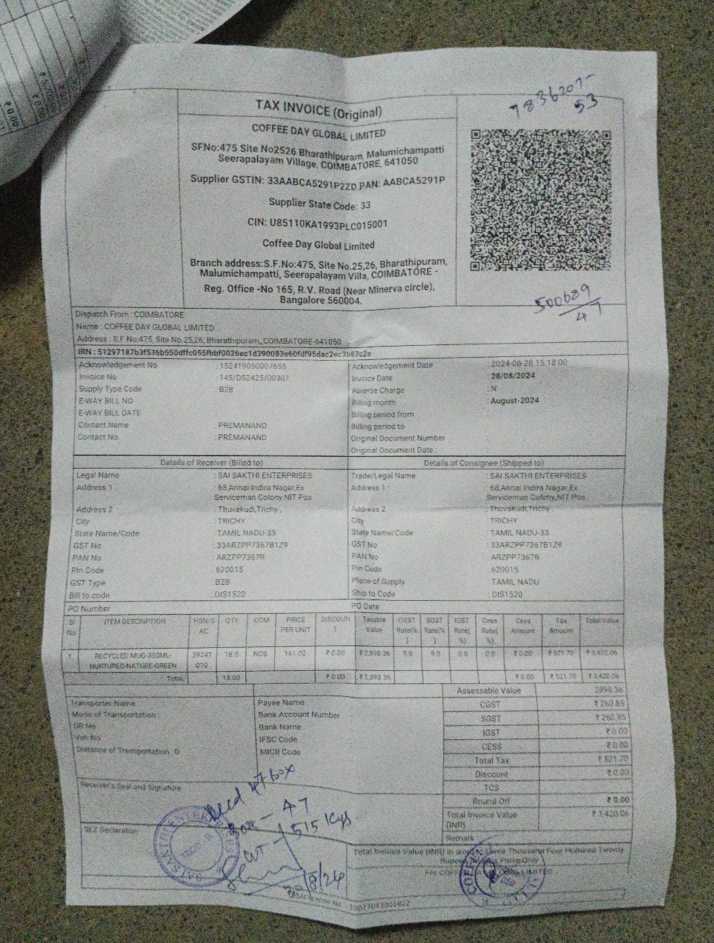 TAX INVOICE (Original)
7836207-
53
COFFEE DAY GLOBAL LIMITED
SFNo:475 Site No2526 Bharathipuram, Malumichampatti
Seerapalayam Village, COIMBATORE, 641050
Supplier GSTIN: 33AABCA5291P2ZD PAN: AABCA5291P
Supplier State Code: 33
CIN: U85110KA1993PLC015001
Coffee Day Global Limited
Branch address:S.F.No:475, Site No.25,26, Bharathipuram,
Malumichampatti, Seerapalayam Villa, COIMBATORE -
Reg. Office -No 165, R.V. Road (Near Minerva circle),
Bangalore 560004.
500689
47
Dispatch From : COIMBATORE
Name : COFFEE DAY GLOBAL LIMITED
Address : S.F No:475, Site No.25,26, Bharathipuram, COIMBATORE-641050
Acknowledgement No Acknowledgement Date : 2024-08-28 15:18:00
Invoice No Invoice Date : 28/08/2024
Supply Type Code : B2B Reverse Charge : N
E-WAY BILL NO Billing month : August-2024
E-WAY BILL DATE Billing period from
Contact Name : PREMANAND Billing period to
Contact No. : PREMANAND Original Document Number
Original Document Date :
Details of Receiver (Billed to) Details of Consignee (Shipped to)
Legal Name : SAI SAKTHI ENTERPRISES Trade/Legal Name : SAI SAKTHI ENTERPRISES
Address 1 : 68,Annai Indira Nagar,Ex Serviceman Colony,NIT Pos Address 1 : 68,Annai Indira Nagar,Ex Serviceman Colony,NIT Pos
Address 2 : Thuvakudi,Trichy, Address 2 : Thuvakudi,Trichy
City : TRICHY City : TRICHY
State Name/Code : TAMIL NADU-33 State Name/Code : TAMIL NADU-33
GST No : 33ARZPP7367B1Z9 GST No : 33ARZPP7367B1Z9
PAN No : ARZPP7367B PAN No : ARZPP7367B
Pin Code : 620015 Pin Code : 620015
GST Type : B2B Place of Supply : TAMIL NADU
Bill to code : DIS1520 Ship to Code : DIS1520
PO Number PO Date
Sl No ITEM DESCRIPTION HSN/SAC QTY UOM PRICE PER UNIT DISCOUNT Taxable Value CGST Rate(%) SGST Rate(%) IGST Rate(%) Cess Rate(%) Cess Amount Tax Amount Total Value
1 RECYCLED MUG-350ML-NURTURED NATURE-GREEN 18.0 NOS 161.02 ₹ 0.00 ₹ 2,898.36 9.0 9.0 0.0 0.0 ₹ 0.00 ₹ 521.70 ₹ 3,420.06
Total 18.00 ₹ 0.00 ₹ 2,898.36 ₹ 0.00 ₹ 521.70 ₹ 3,420.06
Assessable Value 2898.36
Transporter Name Payee Name CGST ₹ 260.85
Mode of Transportation : Bank Account Number SGST ₹ 260.85
GR No Bank Name IGST ₹ 0.00
Veh No IFSC Code CESS ₹ 0.00
Distance of Transportation 0 MICR Code Total Tax ₹ 521.70
Discount ₹ 0.00
Receiver's Seal and Signature TCS
Round Off ₹ 0.00
Total Invoice Value (INR) ₹ 3,420.06
Remark
47 box
Box - 47
wt - 1515 Kgs
SEZ Declaration
Total Invoice Value (INR) in words: Three Thousand Four Hundred Twenty
Only